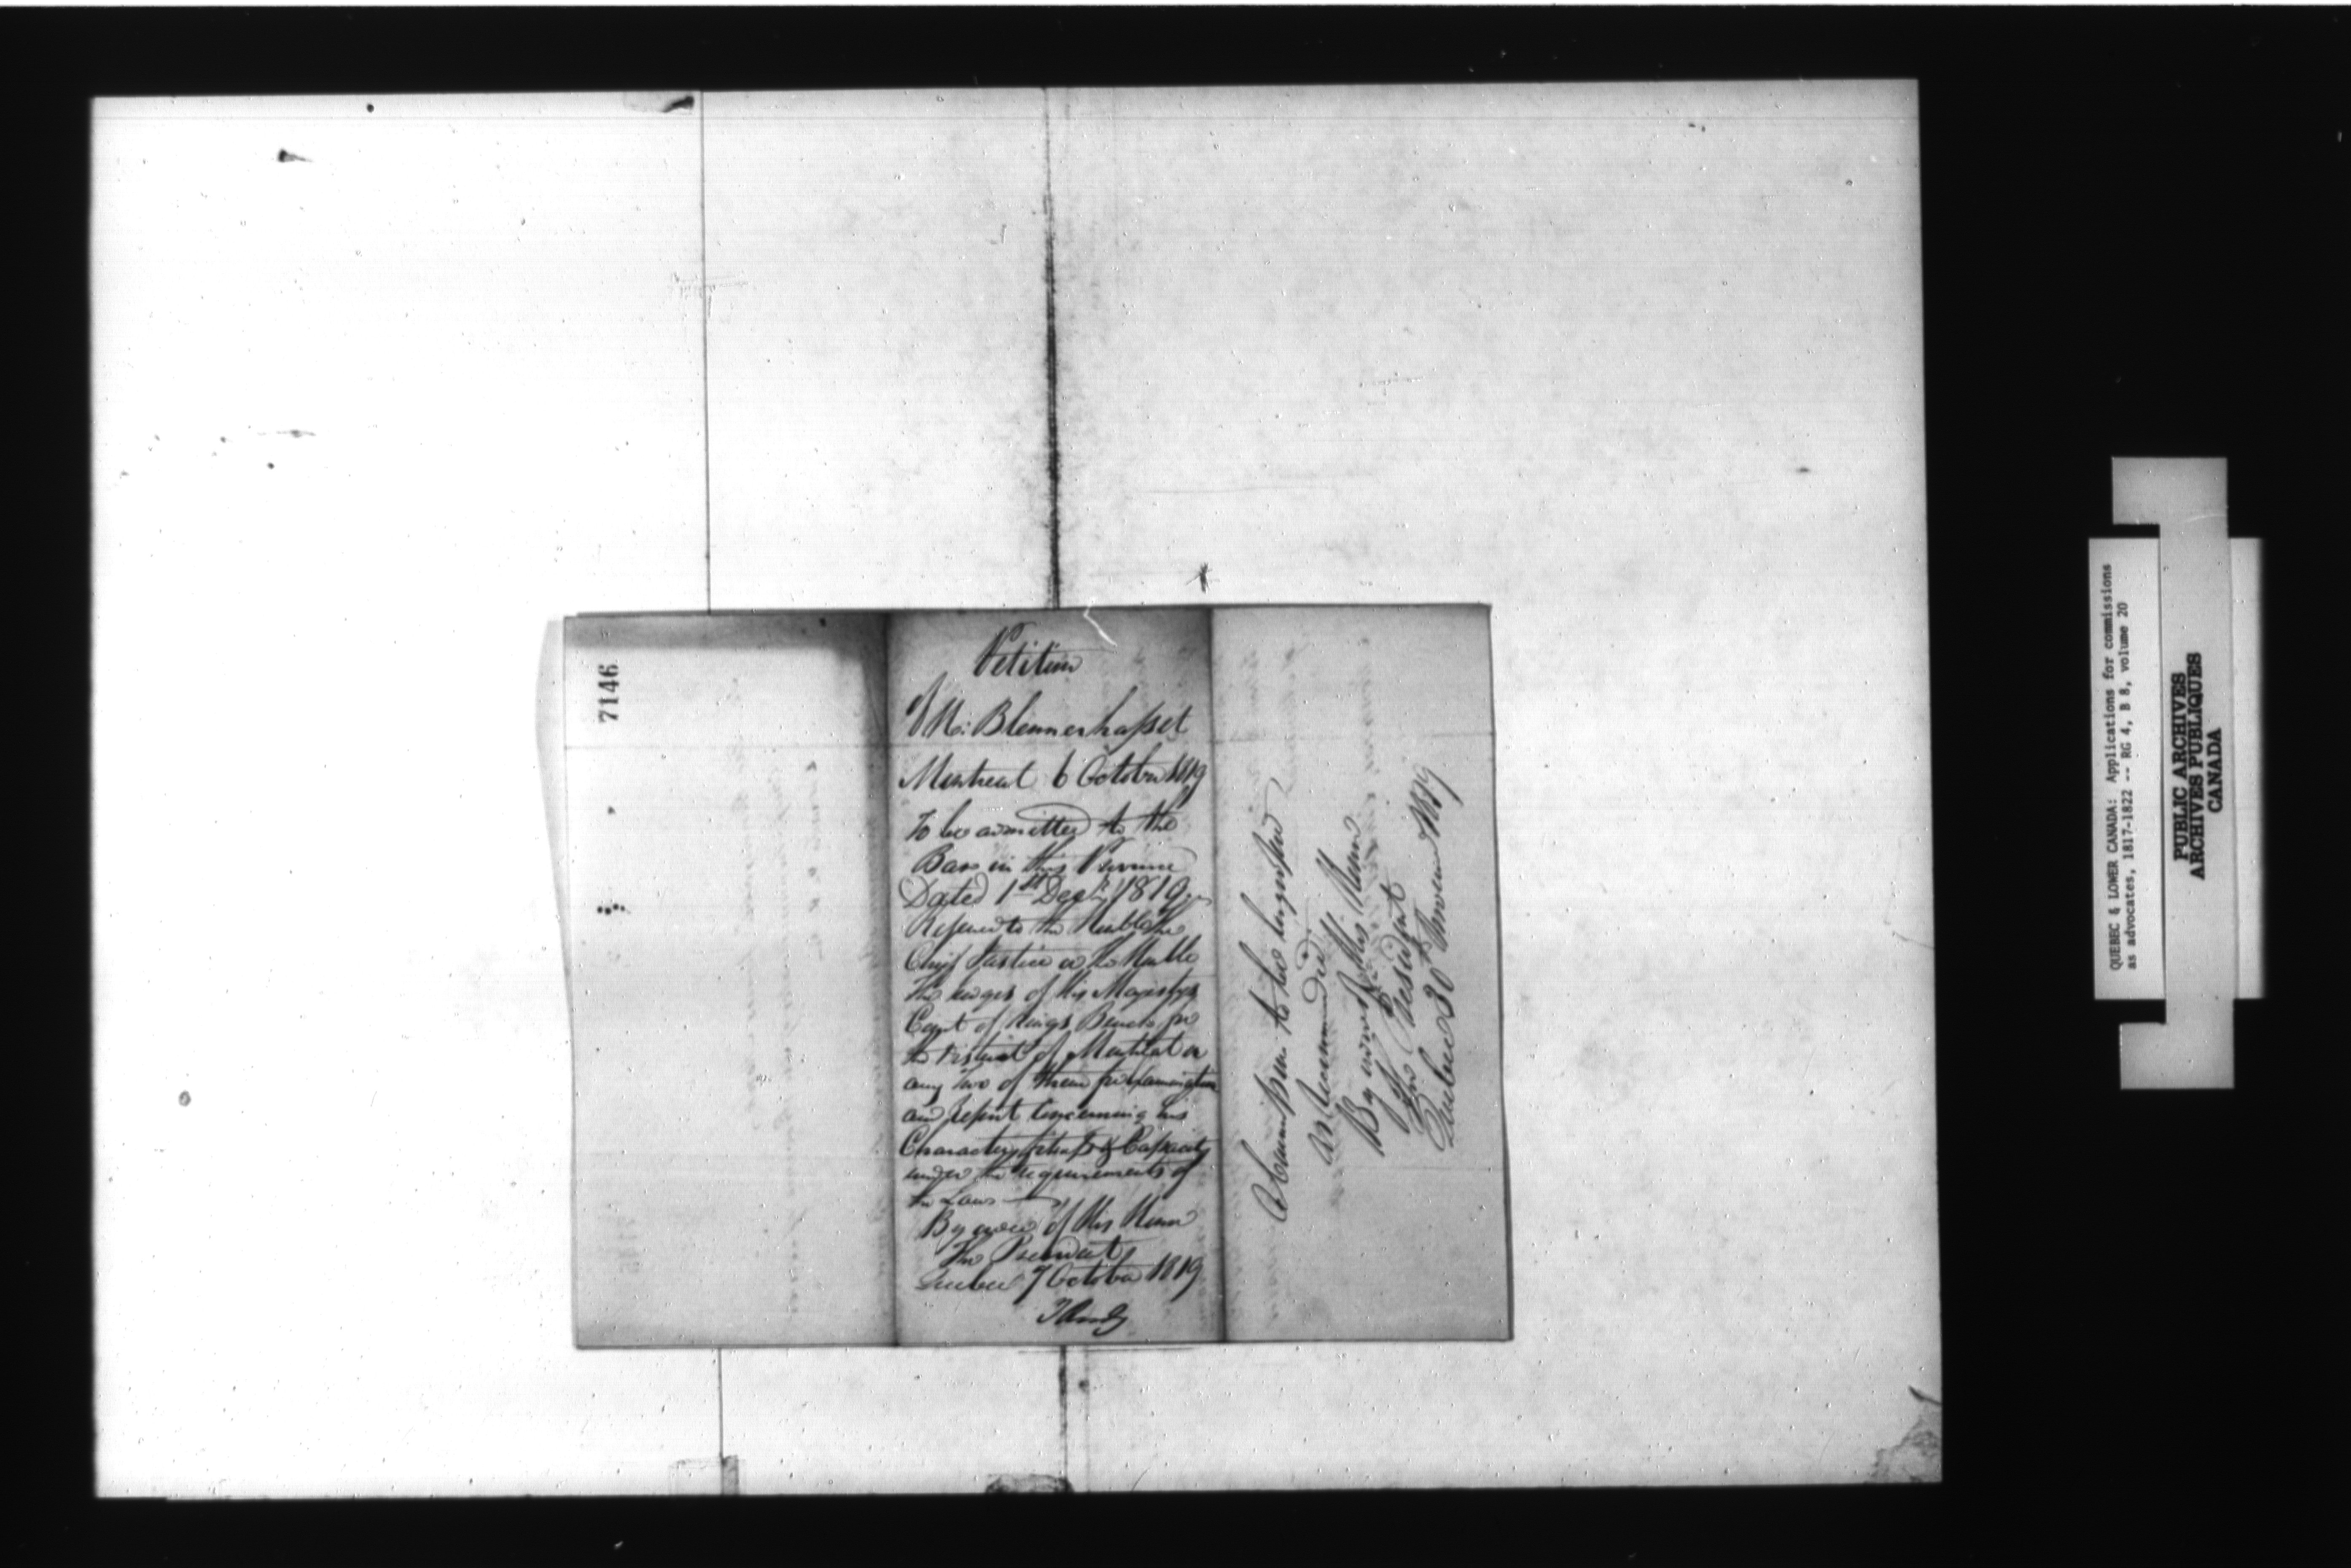 7146
Petition
of Mr: Blennerhasset
Montreal 6 October 1819
To be admitted to the
Bar in this Province
Dated 1st Decr. 1819
Referred to the Honble the
Chief Justice or the Honble
The Judges of His Majestys
Court of Kings Bench for
the District of Montreal or
any two of them for Examination
and report concerning his
Character, fitness & Capacity
under the requirements of
the Law
By order of His Honor
The President
Quebec 7 October 1819
A Commission to be
as recommended
By order of His Honor
The President
Quebec 30th November 1819
QUEBEC & LOWER CANADA: Applications for commissions
as advocates, 1817-1822 -- RG 4, B 8, volume 20
PUBLIC ARCHIVES
ARCHIVES PUBLIQUES
CANADA